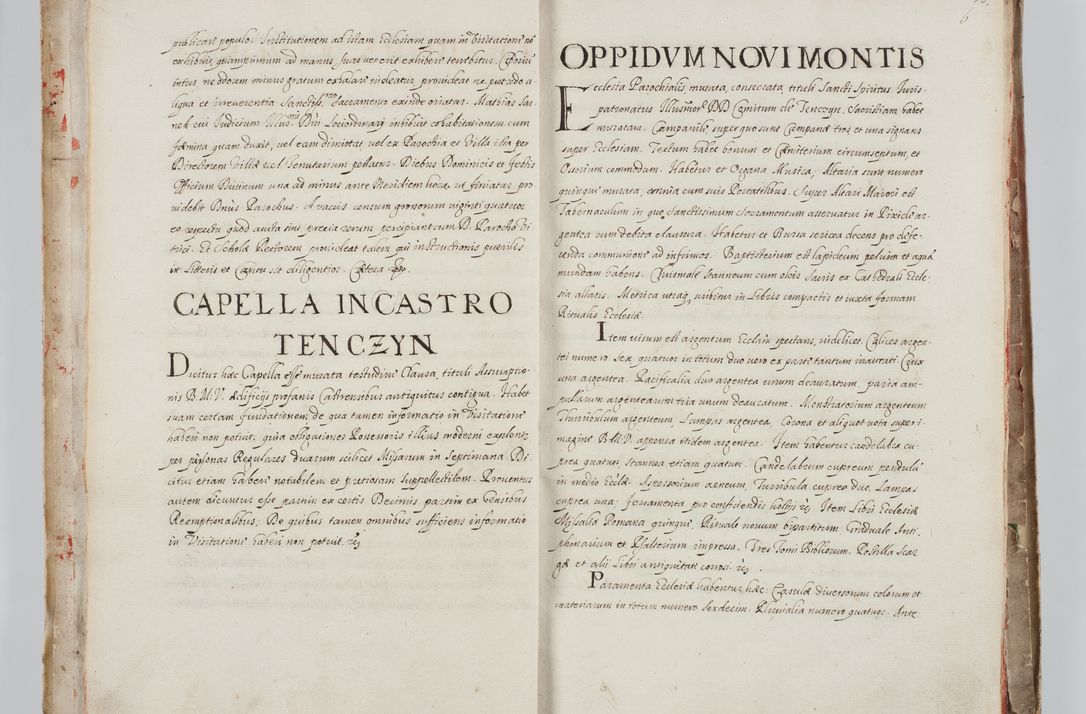 publicare populo. Institutionem ad istam Ecclesiam quam in Visitatione nō
exhibuit, quamprimum ad manus suas venerit exhibere tenebitur. Ciboriū
intus, ne odorem minus gratum exhalare videatur, provideat ne putredo a-
liqua et irreverentia Sanctiss.mo Sacramento exinde oriatur. Mathias Jar
nek cui Judicium Illus.mi Dni Loci ordinarij inhibuit cohabitationem cum
fæmina quam duxit, vel eam dimittat vel ex Parochia et Villa ista per
Directorem Villæ vel Tenutarium pellatur. Diebus Dominicis et festis
Officium Divinum una ad minus ante Meridiem hora ut finiatur pro
videbit Dnus Parochus. A vaccis censum grossorum viginti quatuor
eo respectu quod aucta sint precia rerum percipiant cum D. Parocho Vi
trici. Et Scholæ Rectorem provideat talem qui instructionis puerilis
in Litteris et Cantu sit diligentior. Cætera
CAPELLA IN CASTRO
TENCZYN
Dicitur hæc Capella esse murata testudine clausa, tituli Assumptio-
nis B.M.V. ædificij profanis Castrensibus antiquitus contigua. Habet
suam certam fundationem de qua tamen informatio in Visitatione
haberi non potuit, quia obligationes Possessoris illius moderni explentᵣ
per personas Regulares duarum scilicet Missarum in Septimana Di
citur etiam habere notabilem et pretiosam suppellectilem. Proventus
autem dicuntur esse partim ex certis Decimis partim ex Censibus
Reemptionalibus, De quibus tamen omnibus sufficiens informatio
in Visitatione haberi non potuit. etc
6
OPPIDVM NOVI MONTIS
Ecclesia Parochialis, murata, consecrata, tituli Sancti Spiritus Juris-
patronatus Illusmor. DND Comitum de Tenczyn. Sacristiam habet
muratam. Campanile super quo sunt Campanæ tres et una signans
super Ecclesiam. Tectum habet bonum et Cæmiterium circumseptum, et
Ossorium commodum. Habetur et Organa Musica; Altaria sunt numero
quinque murata, omnia cum suis Portatilibus. Super Altari Maiori est
Tabernaculum in quo Sanctissimum Sacramentum asservatur in Pixide ar-
gentea cum debita clausura. Habetur et Bursa sericea decens pro defe-
renda communione ad infirmos. Baptisterium est lapideum pelvim et aquā
mundam habens. Chrismale stanneum cum oleis Sacris ex Cathedrali Eccle-
sia allatis. Metrica utraq. scribitur in Libris compactis et iuxta formam
Ritualis Ecclesiæ.
Item visum est argentum Ecclam spectans, videlicet Calices argen-
tei numero sex, quatuor in totum duo vero ex parte tantum inaurati. Crux
una argentea. Pacificalia duo argentea unum deauratum, paria am-
pullarum argentearum tria unum deauratum. Monstratorium argenteum
Thuribulum argenteum Lampas argentea, Corona et aliquot vota super i-
magine B.M.V. appensa itidem argentea. Item habentur candelabra cu-
prea quatuor, stannea etiam quatuor. Candelabrum cupreum pendulū
in medio Ecclæ. Aspersorium æneum. Turribula cuprea duo. Lampas
cuprea una; ferramenta pro conficiendis hostijs etc Item Libri Ecclesiæ
Missalia Romana quinque, Rituale novum bipartitum Graduale Anti-
phonarium et Psalterium impressa. Tres Tomi Bibliorum. Postilla Scar-
gæ et alij Libri antiquitate corrosi. etc
Paramenta Ecclesiæ habentur hæc: Casulæ diversorum colorum et
materiarum in totum numero sexdecim. Pluvialia numero quatuor. Ante.